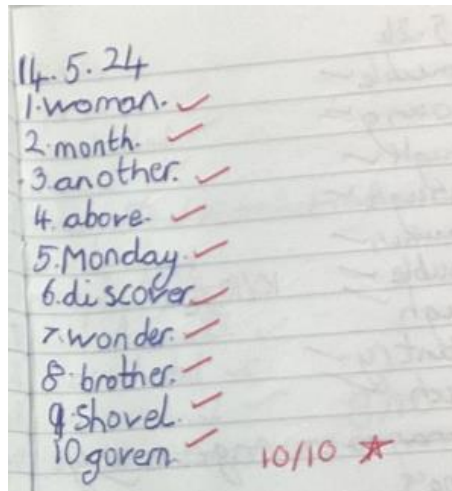 14.5.24
1.woman.
2.month.
3.another.
4.above.
5.Monday.
6.discover.
7.wonder.
8.brother.
9.Shovel.
10 govern.
10/10